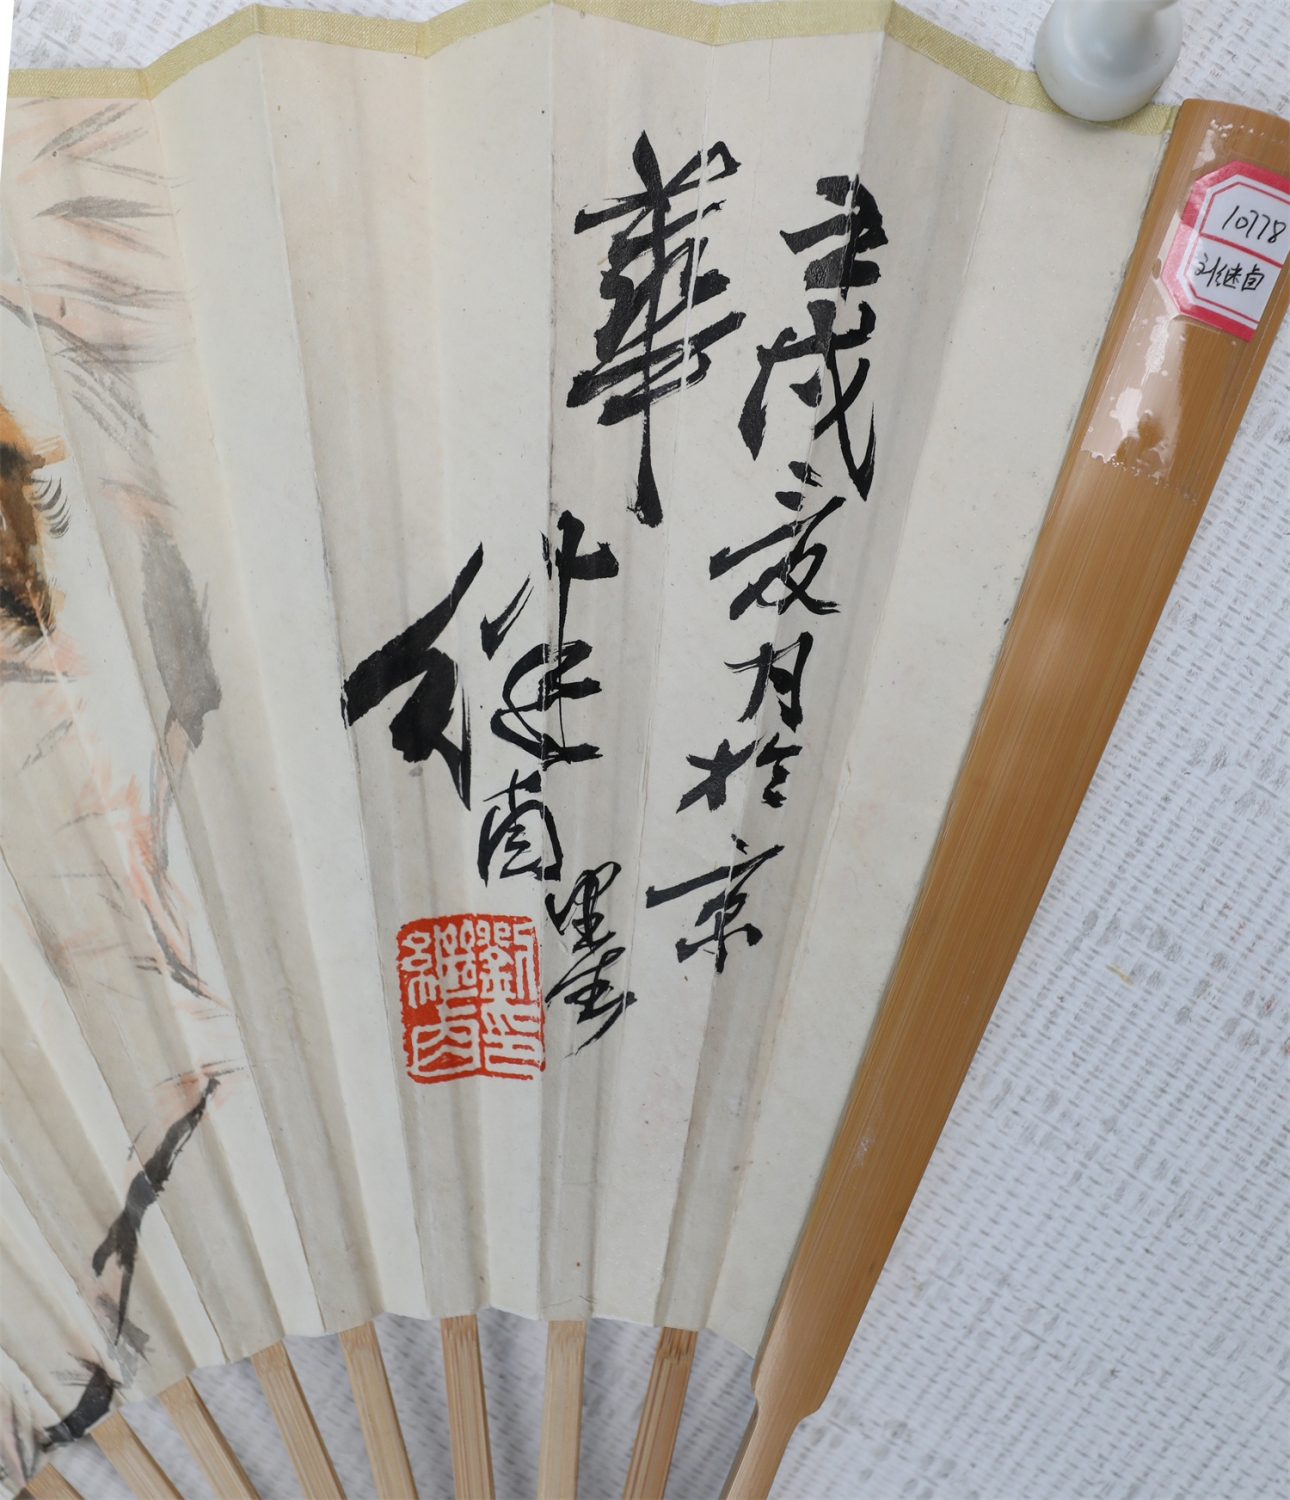 壬戌夏月於京
華 继卣墨
劉印
繼卣
10778
刘继卣